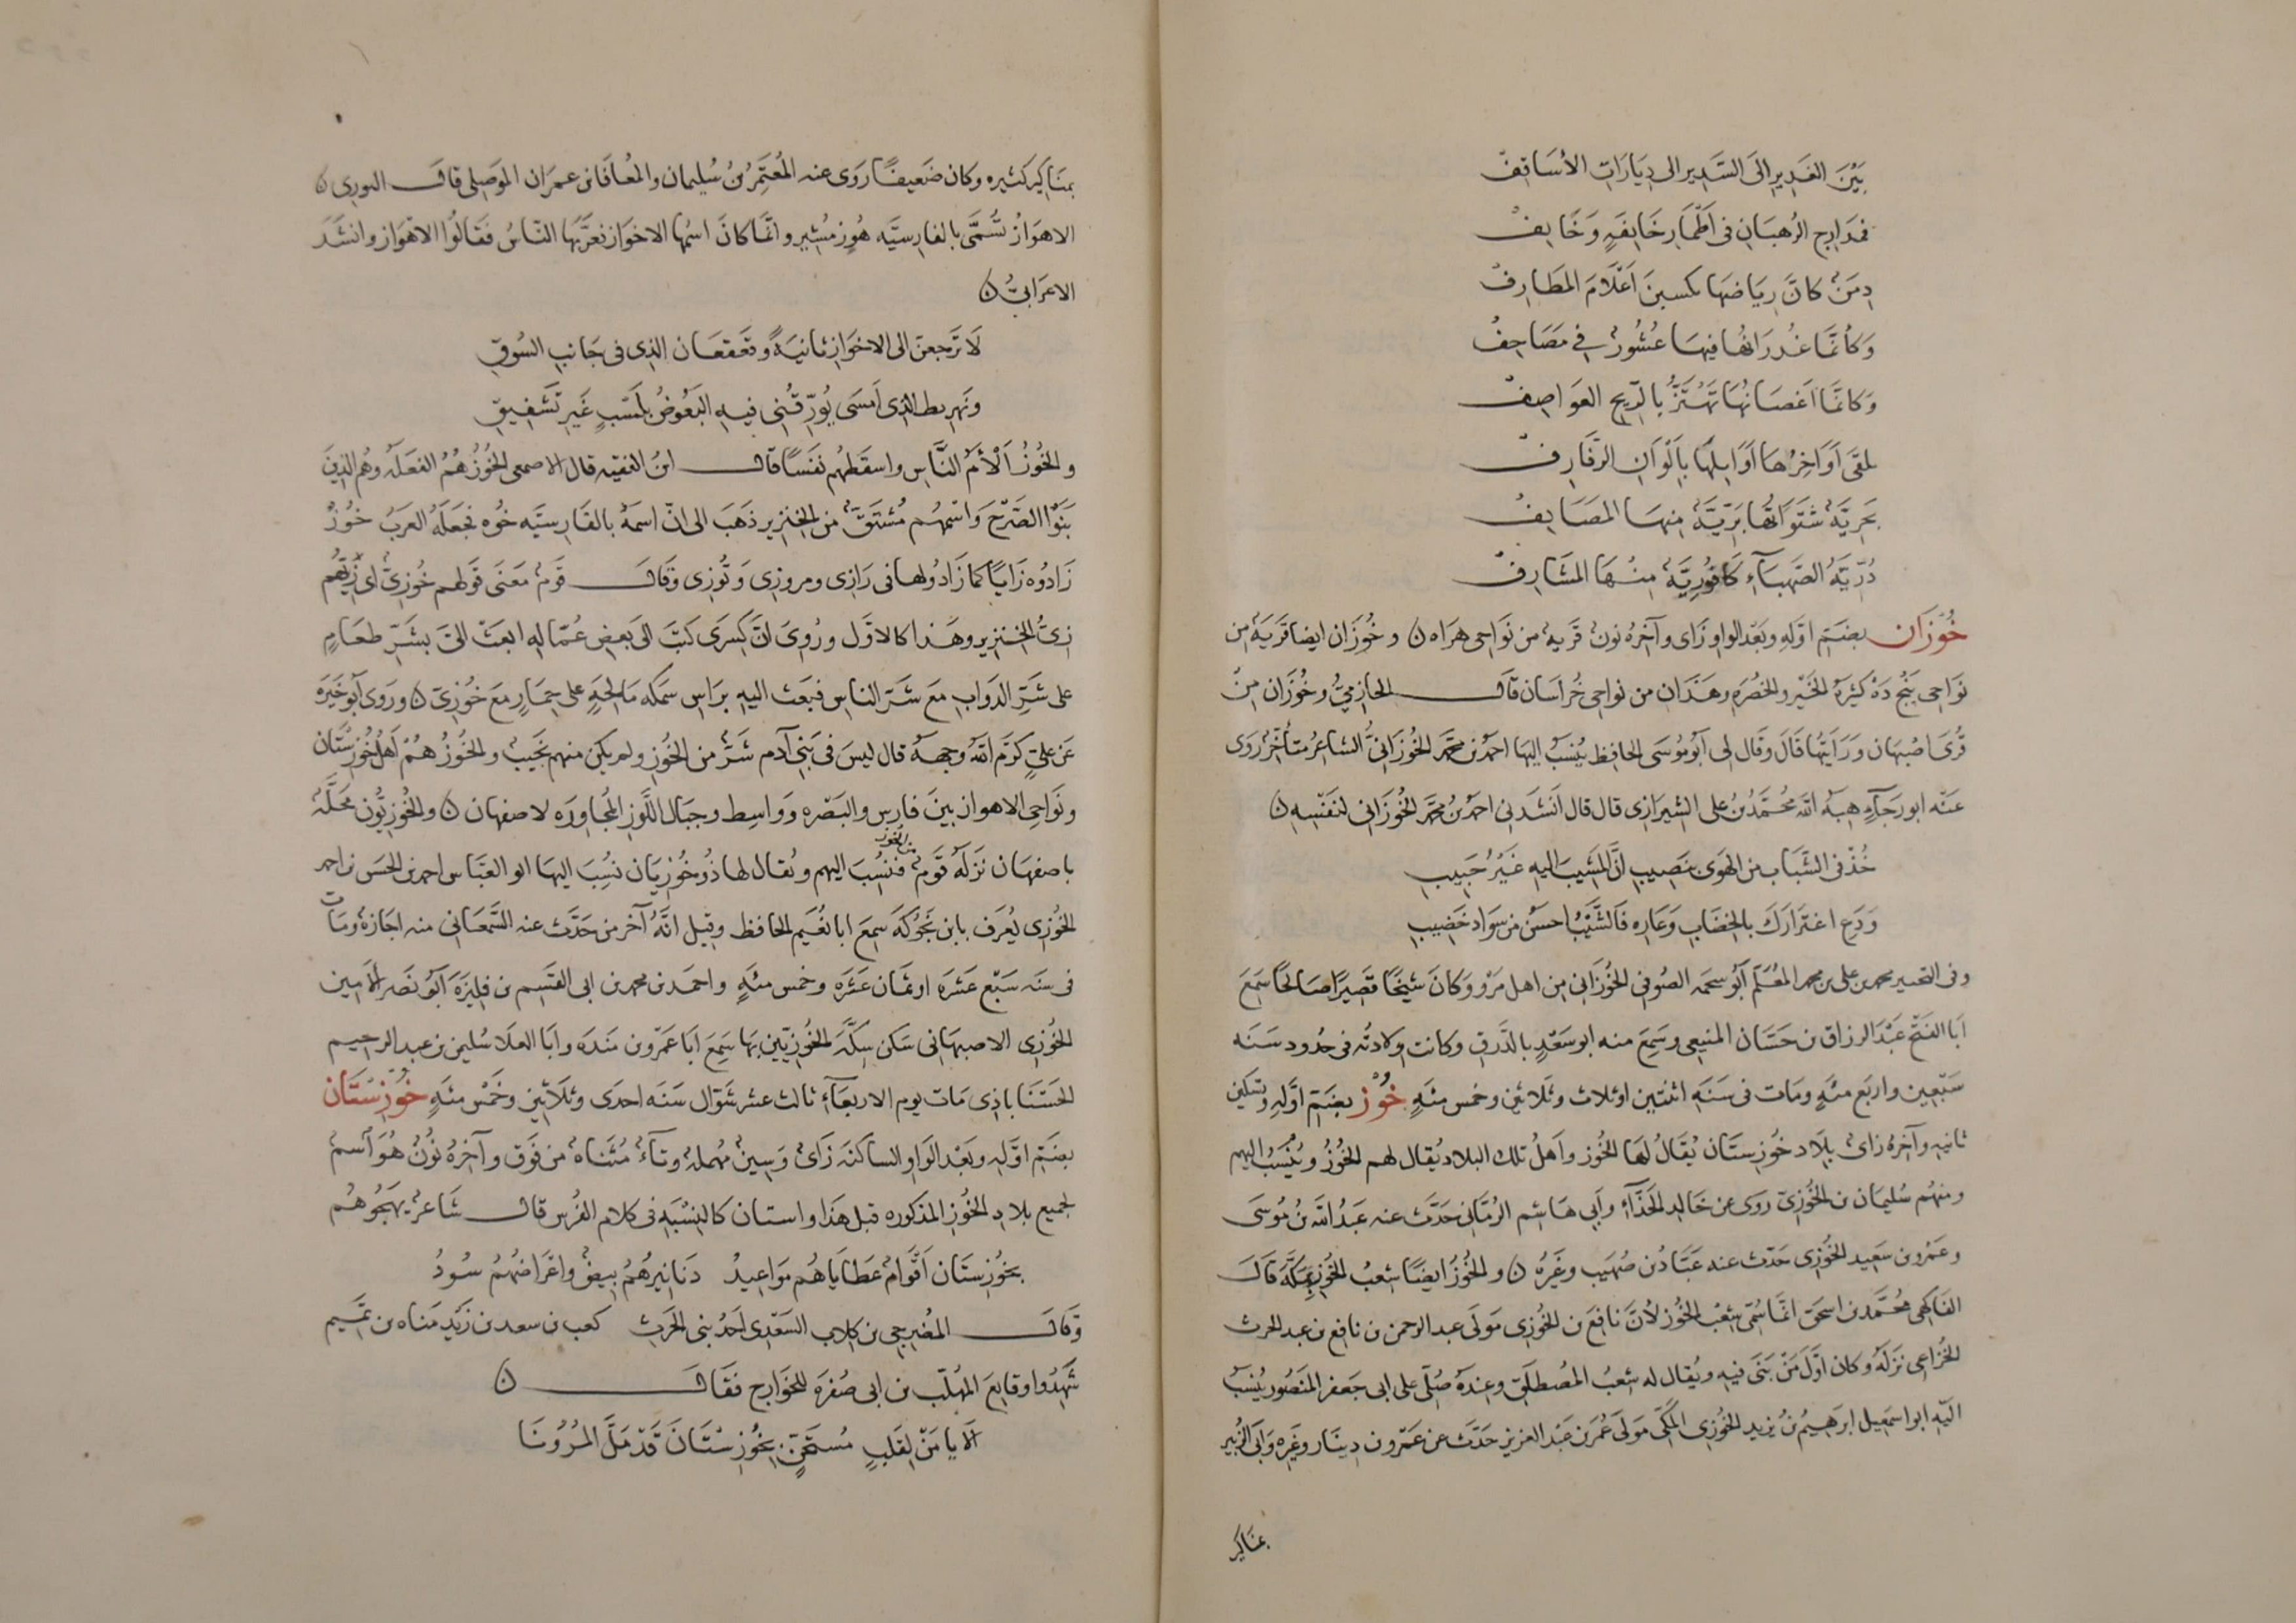 بَيْنَ الغَدِيرِ الىَ السَّدِيرِ الى دِيَارَاتِ الأسَاقِفْ
فمَدَارِجِ الرُهبَانِ فى أَطْمَارِ خَايفَةٍ وَخَايِفْ
دِمَنٌ كانَّ رِيَاضَهَا يكسبنَ أعْلَامَ المَطَارِفْ
وَكأنّمَا غُدرَانُها فيهَا عُشُورٌ فِي مَصَاحِفْ
وَكانّمَا اَغصَانُهَا تَهْتَزُّ بِالرّيحِ العَواصِفْ
يلقَى أوَاخِرُهَا أوَايلَهَا بِألْوَانِ الرَّفَارِفْ
بَحرِيَّةٌ شَتَوَاتُهَا بَرّيَّةٌ مِنهَا المَصَايِفْ
دُرّيَّةُ الصَّهبَآءِ كَافُورِيَّةٌ مِنْهَا المَشَارِفْ
خُوْزَان بضَمِّ اوّلهِ وبَعْد الواو زَاى وآخِرُهُ نونٌ قَريةٌ من نَوَاحى هرَاه ن وخُوزَان ايضا قَريَةٌ من
نَوَاحِى پَنْج دَهْ كثيرَةُ الخَيْرِ والخُضرَةِ وهَذَانِ من نواحِى خُرَاسَان قالَ الحازِمىُّ وخُوزَان مِنْ
قُرَى اصبهَان وَرَأيتُهَا قَالَ وقَال لى أبُو مُوسَى الحافِظ يُنسَبُ اليهَا احمَدُ بن محمّد الخُوزَانىُّ الشاعرُ متأخّرٌ رَوَى
عَنْه ابو رَجَآءٍ هبَةُ اللّه مُحمَّدُ بنُ على الشيرَازى قال قال انشَدَنِى احمَدُ بنُ محمّد الخُوزَانى لنَفْسِهِ ن
خُذْ فى الشَّبَابِ من الهَوَى بنَصِيبِ انَّ المَشِيبَ اليهِ غَيْرُ حَبِيبِ
وَدَعِ اغترَارَكَ بالخِضَابِ وَعَارِهِ فَالشَّيْبُ احسَنُ من سَوَاد خَضِيبِ
وفى التحبير محمد بن على بن محمد المُعَلّم أبُو سحمَه الصُوفى الخُوزَانى مِن اهل مَرْو وَكانَ شيخًا قَصِيرًا صَالحًا سَمِعَ
أبَا الفَتْح عَبْدَ الرزاق بن حَسَّان المنيعى وسَمِعَ منه ابو سَعْدٍ بالدَّرَقِ وكانت وِلادتُه فى حُدُود سَنَه
سَبْعِين وارْبَعِ مئَةٍ ومَات فى سَنَةِ اثنَتين او ثلاث وثَلاثين وخمسِ مئَةٍ خُوْز بضَمِّ اوّلهِ وتَسكين
ثانيهِ وآخِرُهُ زَاىٌ بِلَاد خُوزِستَان يُقَالُ لَهَا الخُوز وأهلُ تلك البلَاد يُقال لهم الخُوزُ ويُنْسَبُ اليهم
ومنهُم سُليمَان بن الخُوزِىّ رَوَى عن خَالد الحَذّآءِ وأبى هَاشم الرُمّانى حَدَّث عنه عَبدُ اللّه بنُ مُوسَى
وعَمْرُو بن سَعِيد الخُوزِى حَدّث عنه عَبَّادُ بن صُهَيب وغَيْرُهُ ن والخُوزُ ايضًا شِعبُ الخُوزِ بمَكَّةَ قَالَ
الفَاكِهى مُحَمَّد بن اسحَقَ انّمَا سُمّى شِعْبَ الخُوزِ لأنَّ نَافِعَ بن الخُوزِى مَولَى عبد الرحمن بن نافع بن عبد الحرث
الخُزَاعِى نَزَلَهُ وكان اوَّلَ مَنْ بَنَى فيهِ ويُقال له شِعبُ المُصطَلَقِ وعِندَهُ صُلّىَ على ابى جَعفر المَنصُور يُنسَبُ
اليْهِ ابو اسمَعيل ابرَهيمُ بنُ يزيد الخُوزى المكّى مَولَى عُمَر بن عَبْد العزيز حَدّثَ عن عَمْرو بن دِينَار وغَيْرِهِ وأبى الزُبير
بمنَاكِيرَ
بمنَاكِيرَ كثيرَهٍ وكان ضَعِيفًا رَوَى عنه المُعْتَمِرُ بنُ سُليمان والمُعَافَا بن عمرَان المَوصِلى قالَ التورى ن
الاهوَازُ تُسَمَّى بالفارسيَّه هُوزمشير وانّمَا كانَ اسمُهَا الاخوَاز فعَرَّبَهَا النّاسُ فقَالُوا الاهْوَاز وانشَدَ
الاعرَابىُّ ن
لَا تَرجعنّ الى الاخوَازِ ثانيَةً وقعَقعَانَ الذِى فى جَانِبِ السُوقِ
ونَهرِ بط الذِى أمسَى يُؤرّقُنِى فيهِ البَعُوضُ بلَسْبٍ غَيرِ تَشفِيقِ
والخُوزُ ألْأَمُ النَّاسِ واسقَطُهُم نفَسًا قال ابنُ الفقيه قال الاصمعى الخُوزُ هُمُ الفَعَلَةُ وهُم الذينَ
بَنَوْا الصَّرْحَ وَاسْمُهُم مُشتَقٌّ من الخنزير ذهَبَ الى انّ اسمَهُ بالفَارِسيَّه خُوه فجعَلَهُ العَربُ خُوزْ
زَادُوه زَايًا كمَا زَادُوهَا فى رَازى ومروزِى وَتُوزِى وقَالَ قَومٌ مَعنَى قَولهم خُوزِىٌّ اى زِيُّهُم
زِىُّ الخِنزِير وهَذا كالاوَّل ورُوِىَ انَّ كِسرَى كتَبَ الىَ بَعضِ عُمّالِهِ ابعَثْ الىَّ بشَرِّ طعَامٍ
على شَرِّ الدَوَابِ مَعَ شَرِّ الناس فبَعَث اليهِ برَاسِ سَمَكه مَالحَةٍ على حِمَارٍ مَعَ خُوزِىّ ن ورَوَى أبُو خَيْرَة
عَن علىٍّ كَرّمَ اللّهُ وجهَهُ قال ليسَ فى بَنِى آدم شَرٌّ من الخُوزِ ولم يكن منهم نَجيبٌ والخُوزُ هُمْ أهلُ خُوزِسْتَان
ونَوَاحِى الاهواز بينَ فارِس والبَصْره وَواسِط وجبَال اللّوز المُجَاورَه لاصفهان ن والخُوزيُّون مَحَلَّةٌ
باصفهَان نَزَلَهُ قَومٌ من الخوز فنُسِبَ اليهم ويُقال لها دُرخُوزيَان نُسِبَ اليهَا ابو العَبّاس احمد بن الحَسَن بن احمد
الخُوزِى يُعرَف بابن نجُوكَه سَمِعَ ابا نُعَيم الحافظ وقيل انَّهُ آخر من حَدَّث عنه السَّمعَانى منه اجَازةً ومَاتَ
فى سنَه سَبْعَ عَشرَه او ثَمَان عَشَرَه وخمس مئَةٍ واحمَد بن محمد بن ابى القَسِم بن فليزَه أبُو نَصْر الامين
الخُوزِى الاصبهَانى سَكنَ سِكَّةَ الخُوزِيِّين بهَا سَمِعَ أبَا عَمْرو بن مَندَه وابَا العَلَا سُليمن بن عبد الرحيم
الحَسنَابَاذِى مَات يوم الاربعَآءِ ثالث عشر شوّال سَنَه احدَى وثلَاثين وخَمْسِ مئَةٍ خُوْزِسْتَان
بضَمِّ اوّلهِ وبَعْد الوَاو السَاكنَه زَاىٌ وَسِينٌ مُهملةٌ وتَآءٌ مُثَنّاهٌ من فَوق وآخِرُهُ نُونٌ هُوَ اسمٌ
لجميع بلادِ الخُوزِ المذكوره قبل هَذا واستان كالنِسْبَهِ فى كلام الفُرس قال شَاعرٌ يهَجُوهُم
بخُوزِستَان أقْوامٌ عَطَايَاهُم مَوَاعِيدُ دَنَانِيرُهُمْ بيضٌ واعْرَاضُهُمُ سُودُ
وَقَالَ المُضَرِجى بن كلاب السَعْدى احَدُ بنى الحَرث كعب بن سعد بن زيدِ مَناه بن تمَيم
شَهِدُوا وقايعَ المهُلّب بن ابى صُفرَه للخوارج فقَالَ ن
ألَا يا مَنْ لِقَلبٍ مُستَجَنٍّ بخُوزِسْتَانَ قَدْ مَلَّ المُزُونَا